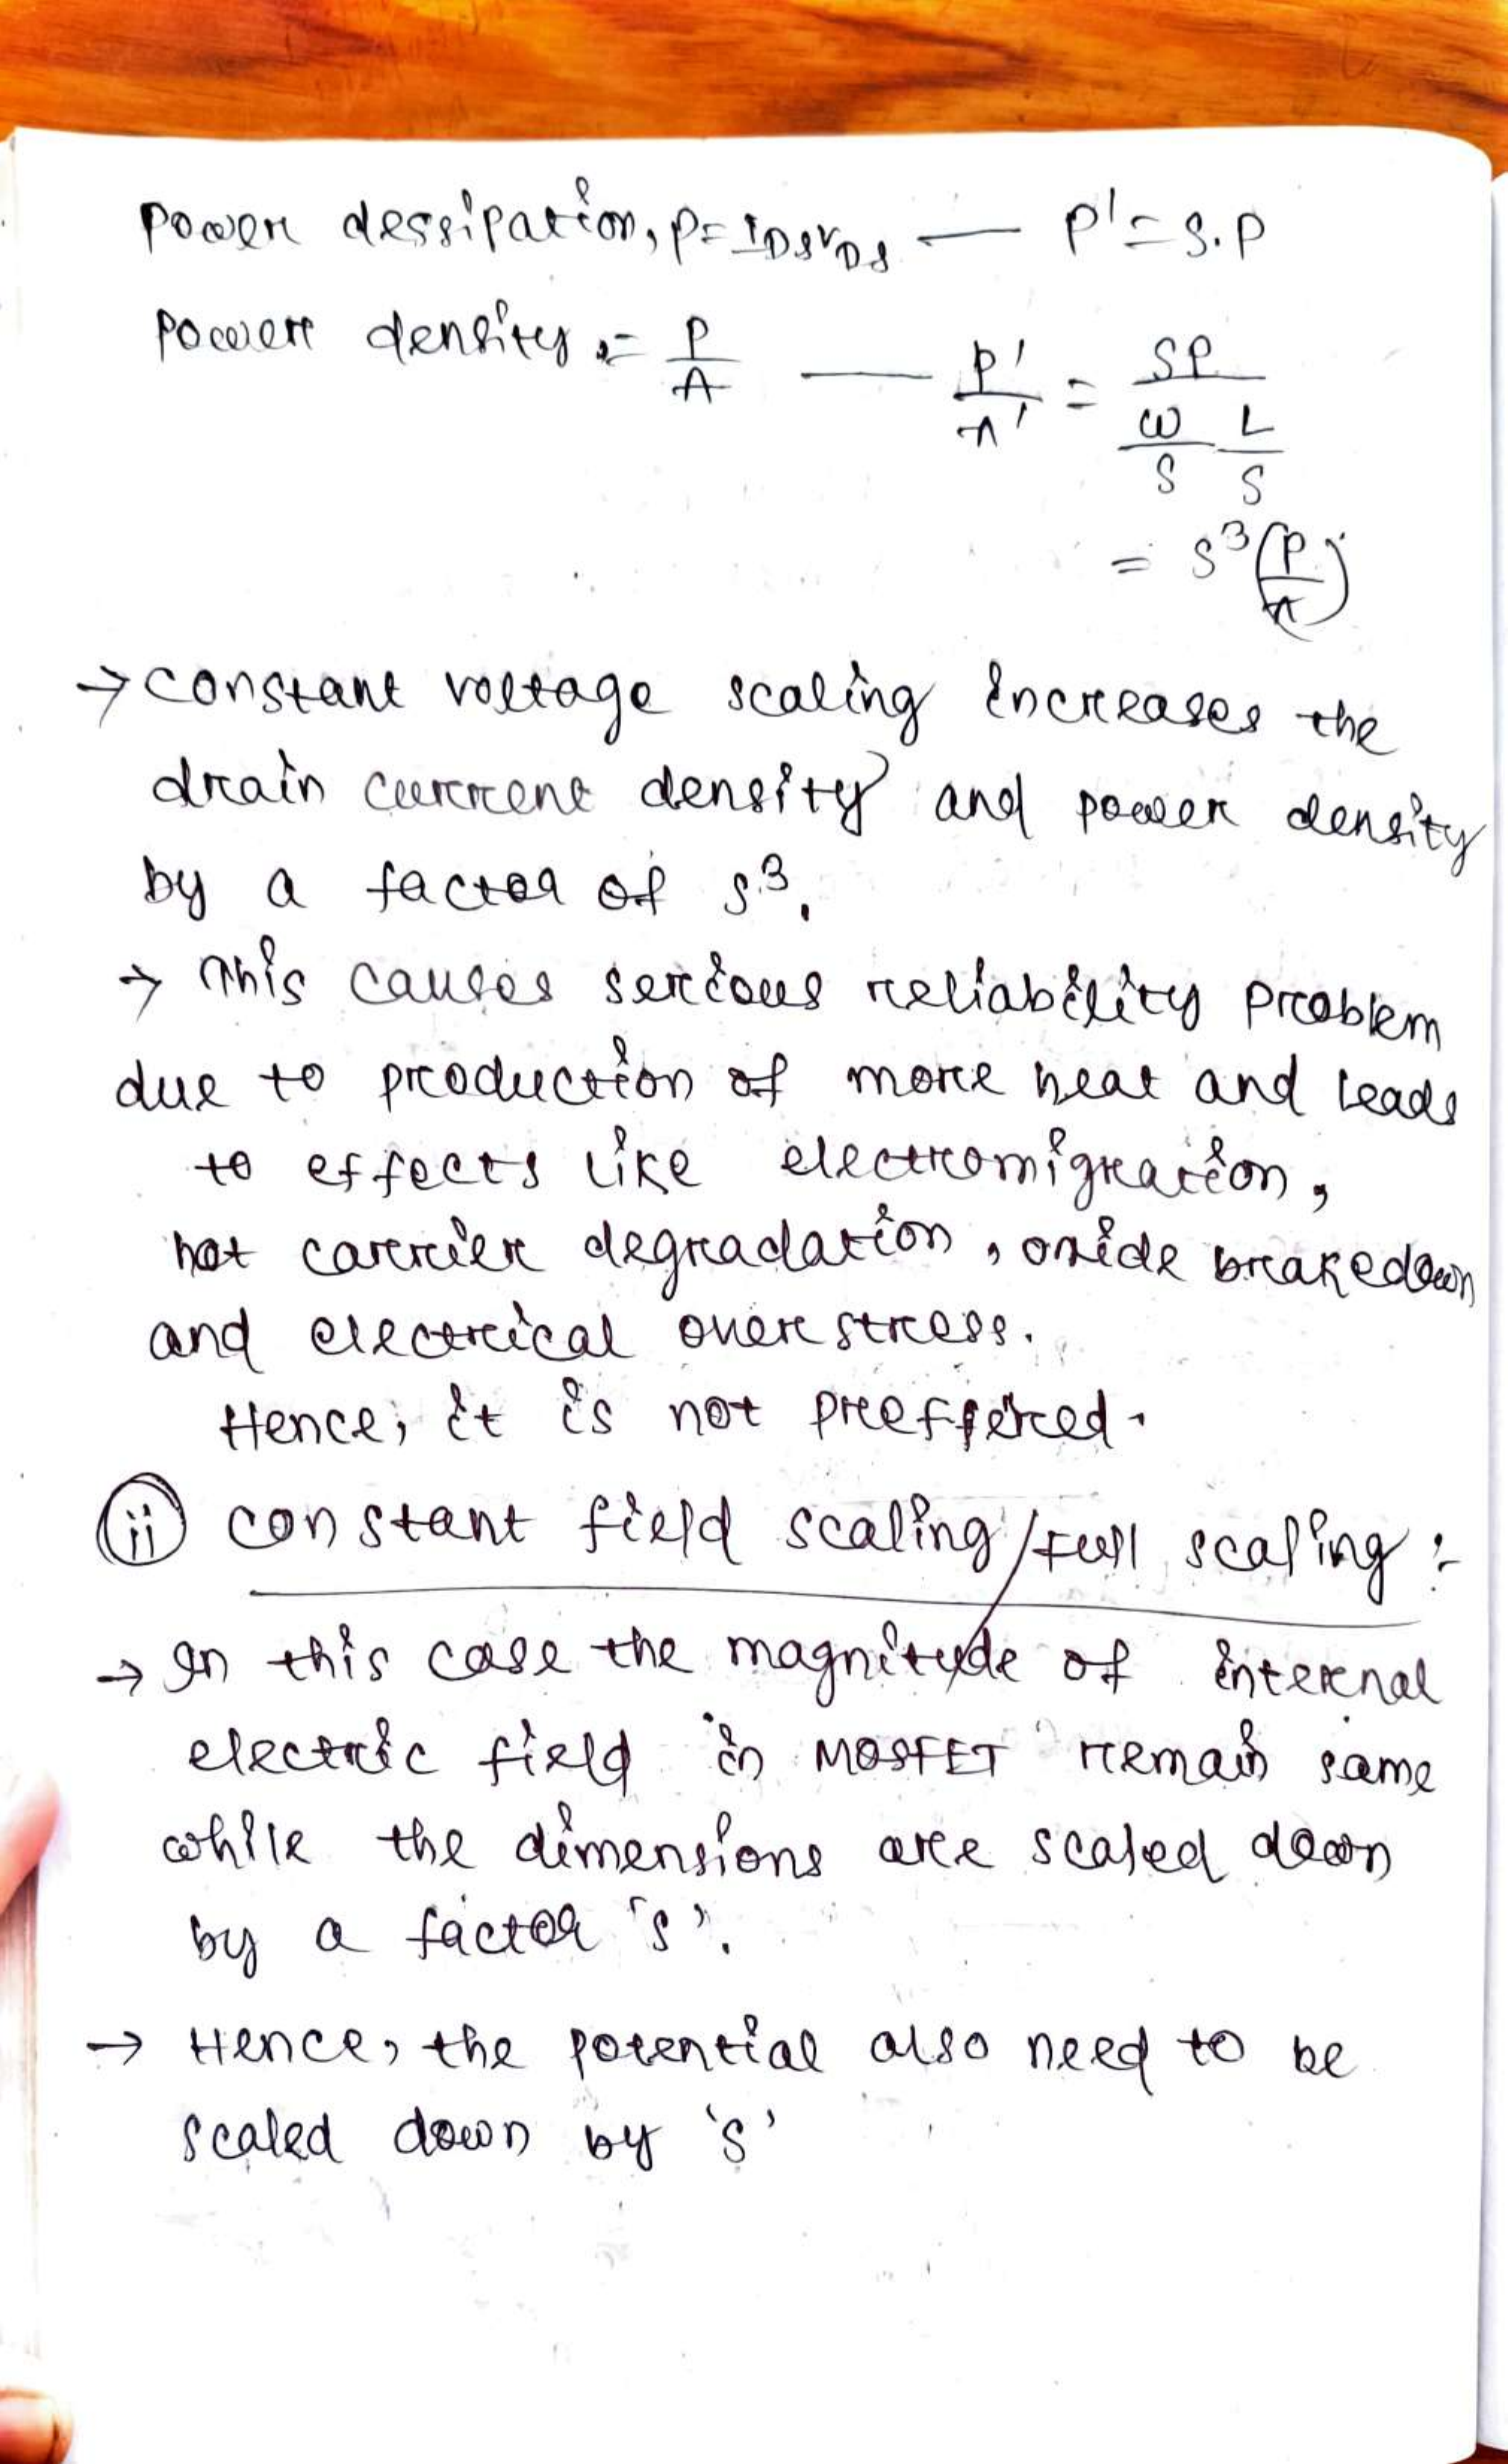 Power dessipation, P = IDSVDS — P' = S.P
Power density, = P/A — P'/A' = SP / (W/S L/S)
= S³(P/A)
→ constant voltage scaling increases the
drain current density and power density
by a factor of S³.
→ This causes serious reliability problem
due to production of more heat and leads
to effects like electromigration,
hot carrier degradation, oxide breakedown
and electrical over stress.
Hence, it is not preffered.
(ii) constant field scaling/Full scaling :-
→ In this case the magnitude of internal
electric field in MOSFET remain same
while the dimensions are scaled down
by a factor 's'.
→ Hence, the potential also need to be
scaled down by 's'